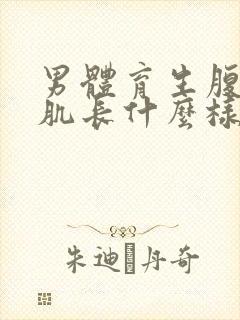 男體育生腹
肌長什麼樣
朱迪 丹奇